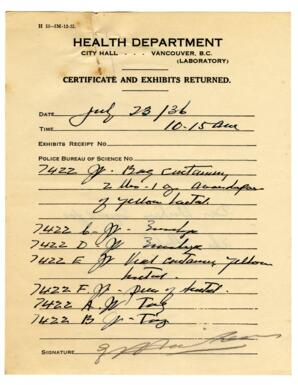 H 10-5M-12-35.
HEALTH DEPARTMENT
CITY HALL . . . VANCOUVER, B.C.
(LABORATORY)
CERTIFICATE AND EXHIBITS RETURNED.
DATE July 23/36
TIME 10-15 am
EXHIBITS RECEIPT NO.
POLICE BUREAU OF SCIENCE NO.
7422 Bag containing
2 lbs - 1 oz
of yellow metal
7422 C
7422 D
7422 E Vial containing yellow
metal
7422 F Piece of metal
7422 A Tag
7422 B Tag
SIGNATURE